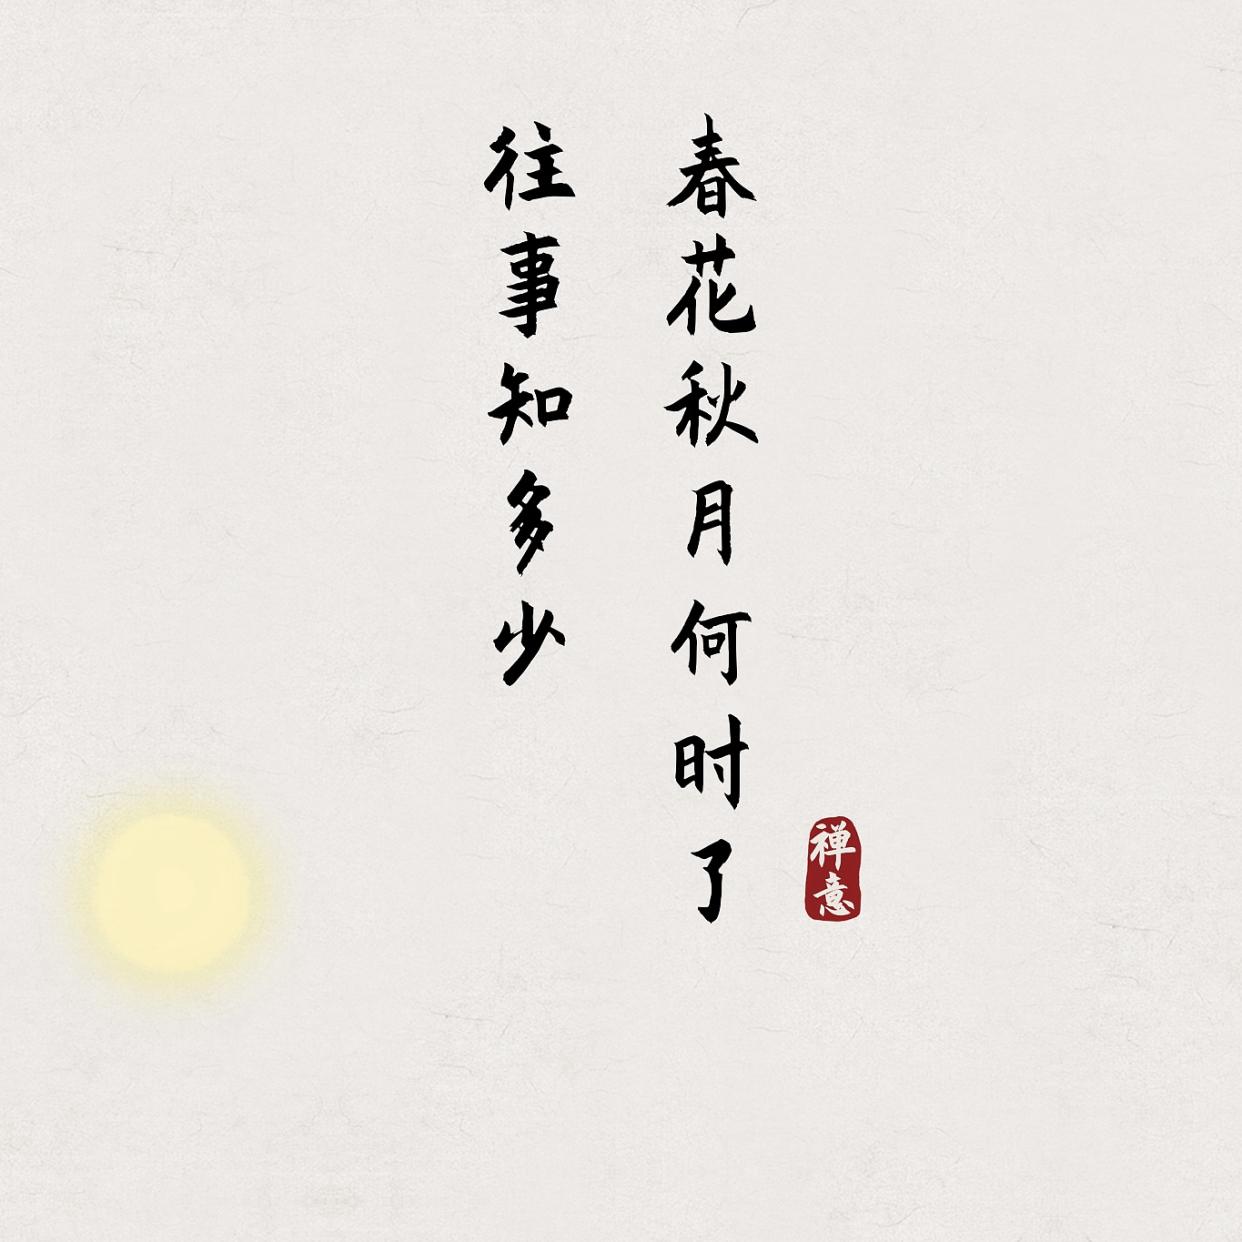 春花秋月何时了
往事知多少
禅意